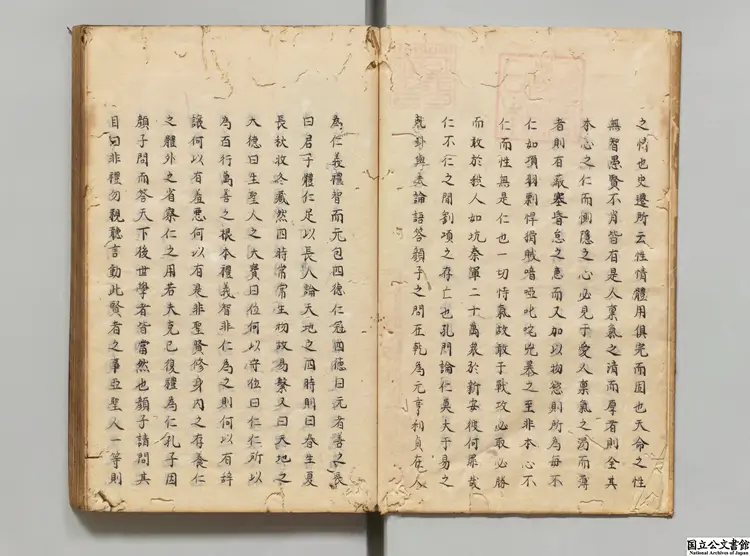 之情也史遷所云性情體用俱完而固也天命之性
無智愚賢不肖皆有是人稟氣之清而厚者則全其
本心之仁而惻隱之心必見于愛人稟氣之濁而薄
者則有蔽塞昏怠之患而又加以物慾則所為每不
仁如項羽剽悍猾賊喑啞叱咤兇暴之至非本心不
仁而性無是仁也一切恃氣故敢于戰攻必取必勝
而敢於殺人如坑秦軍二十萬衆於新安彼何罪哉
仁不仁之間劉項之存亡也孔門論仁莫大于易之
卦與夫論語答顏子之問在乾為元亨利貞在人
為仁義禮智而元包四德仁冠四德曰元者善之長
曰君子體仁足以長人論天地之四時則曰春生夏
長秋收冬藏然四時常常生物故易繫又曰天地之
大德曰生聖人之大寶曰位何以守位曰仁仁所以
為百行萬善之根本禮義智非仁為之則何以有辭
讓何以有羞惡何以有是非聖賢修身內之存養仁
之體外之省察仁之用若夫克己復禮為仁孔子因
顏子問而答天下後世學者皆當然也顏子請問其
目曰非禮勿視聽言動此賢者之事亞聖人一等則
国立公文書館
National Archives of Japan